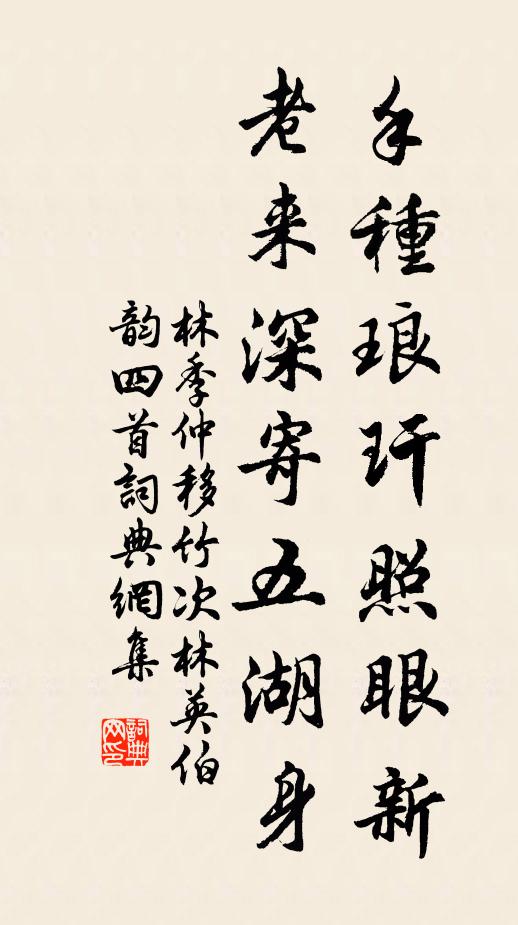 手種琅玕照眼新
老来深寄五湖身
林季仲移竹次林英伯
韵四首詞典網集
詞典網印